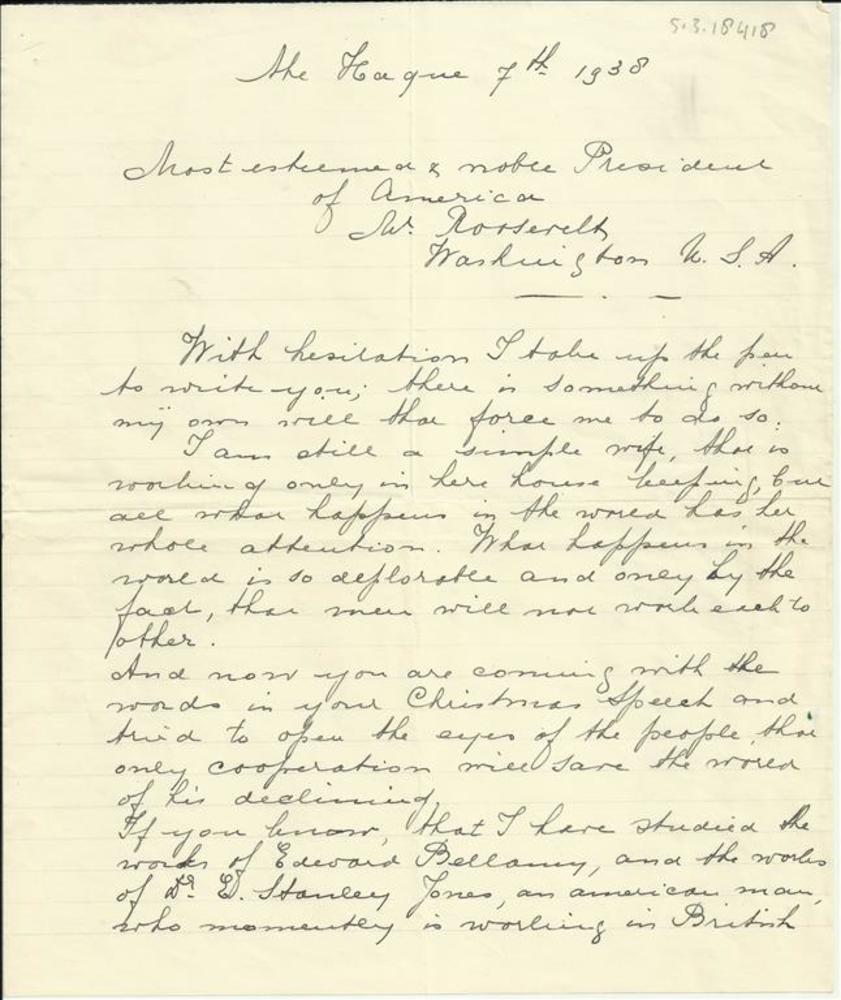 S.3.18418
The Hague 7th 1938
Most esteemed & noble President
of America
Mr. Roosevelt,
Washington U. S. A.
With hesitation I take up the pen
to write you; there is something without
my own will that force me to do so.
I am still a simple wife, that is
working only in here house keeping, but
all what happens in the world has her
whole attention. What happens in the
world is so deplorable and only by the
fact, that men will not work each to
other.
And now you are coming with the
words in your Christmas Speech and
tried to open the eyes of the people, that
only cooperation will save the world
of his declining.
If you know, that I have studied the
works of Edward Bellamy, and the works
of Dr. E. Stanley Jones, an american man,
who momently is working in British